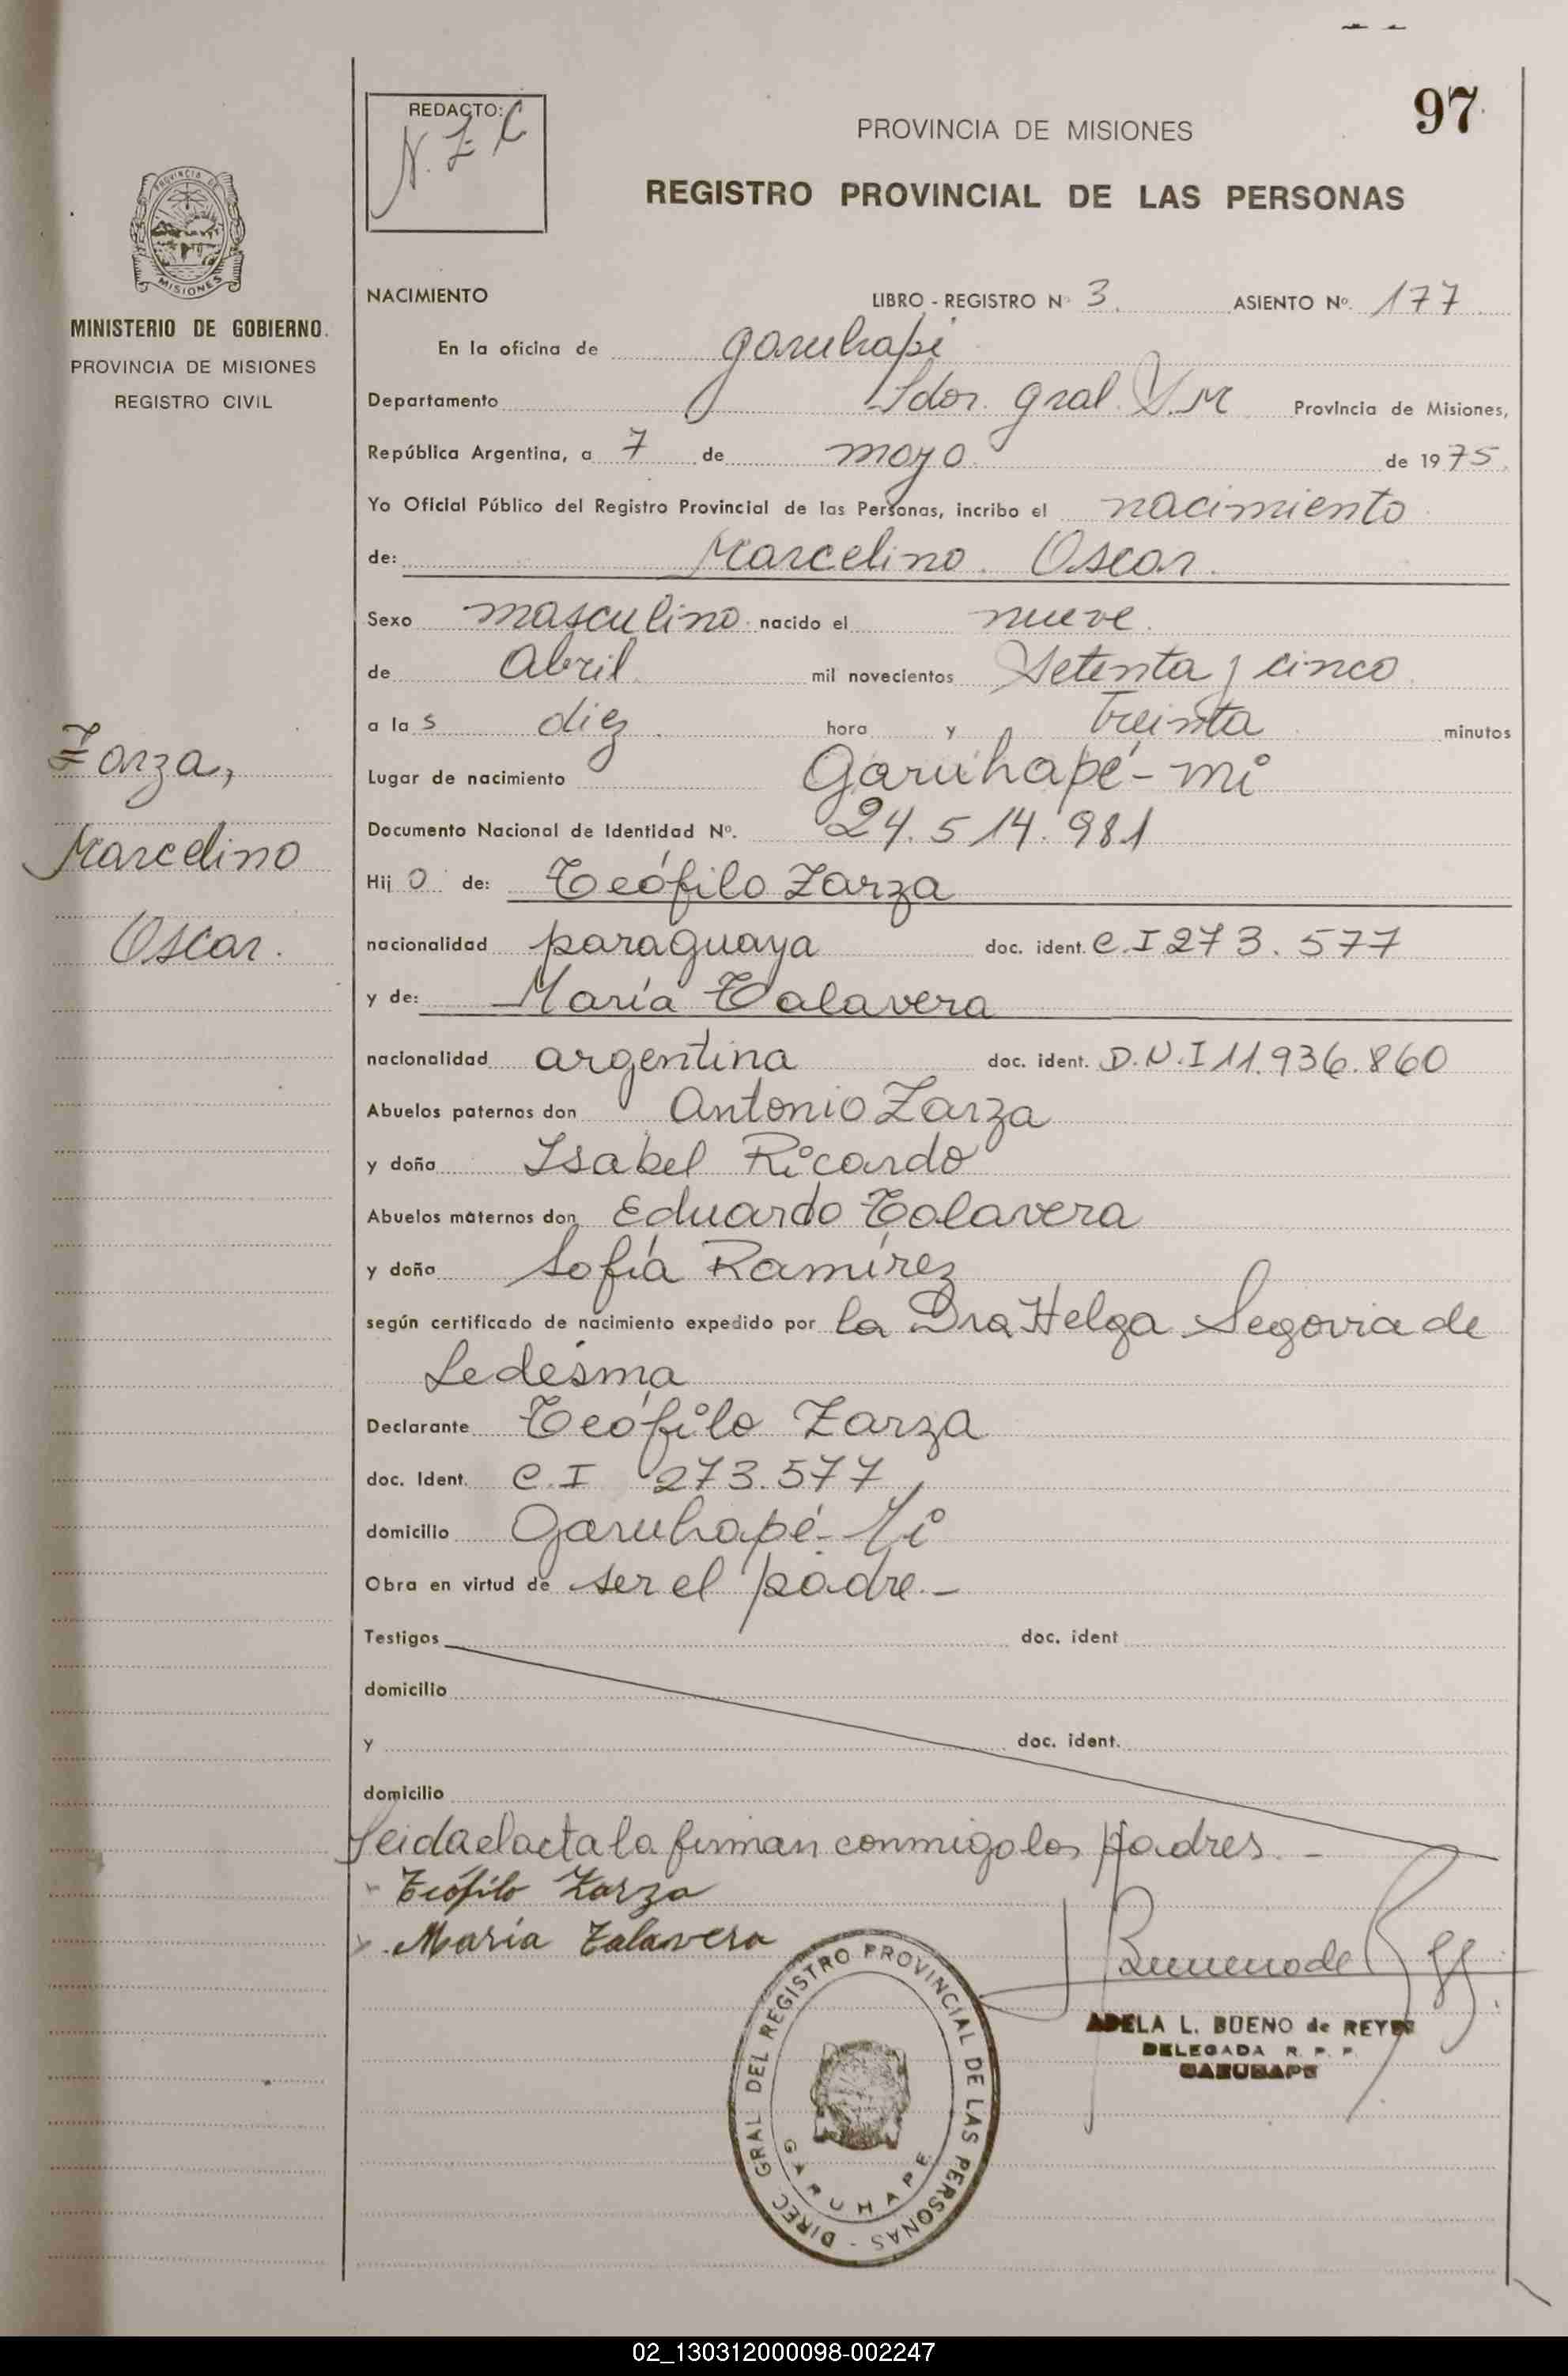 97
REDACTO:
N. Z. C
PROVINCIA DE MISIONES
REGISTRO PROVINCIAL DE LAS PERSONAS
PROVINCIA DE
MISIONES
MINISTERIO DE GOBIERNO.
PROVINCIA DE MISIONES
REGISTRO CIVIL
NACIMIENTO LIBRO - REGISTRO Nº 3. ASIENTO Nº. 177
En la oficina de garuhapé
Departamento Ldor. gral. S. M Provincia de Misiones,
República Argentina, a 7 de mayo de 1975.
Yo Oficial Público del Registro Provincial de las Personas, incribo el nacimiento
de: Marcelino Oscar.
Sexo masculino nacido el nueve.
de Abril mil novecientos Setenta y cinco
a las diez hora y treinta minutos
Lugar de nacimiento Garuhapé-mi
Documento Nacional de Identidad Nº. 24.514.981
Hijo de: Teófilo Zarza
nacionalidad paraguaya doc. ident. C.I 273.577
y de: María Talavera
nacionalidad argentina doc. ident. D.N.I 11.936.860
Abuelos paternos don Antonio Zarza
y doña Isabel Ricardo
Abuelos maternos don Eduardo Talavera
y doña Sofía Ramírez
según certificado de nacimiento expedido por la Dra Helga Segovia de
Ledesma
Declarante Teófilo Zarza
doc. Ident. C.I 273.577
domicilio Garuhapé-Mi
Obra en virtud de ser el padre.-
Testigos doc. ident
domicilio
y doc. ident.
domicilio
Leida el acta la firman conmigo los padres. -
Teófilo Zarza
María Talavera
Zarza,
Marcelino
Oscar.
Bueno de
ADELA L. BUENO de REYES
DELEGADA R. P. P.
GARUHAPE
DIREC. GRAL DEL REGISTRO PROVINCIAL DE LAS PERSONAS -
GARUHAPE
02_130312000098-002247